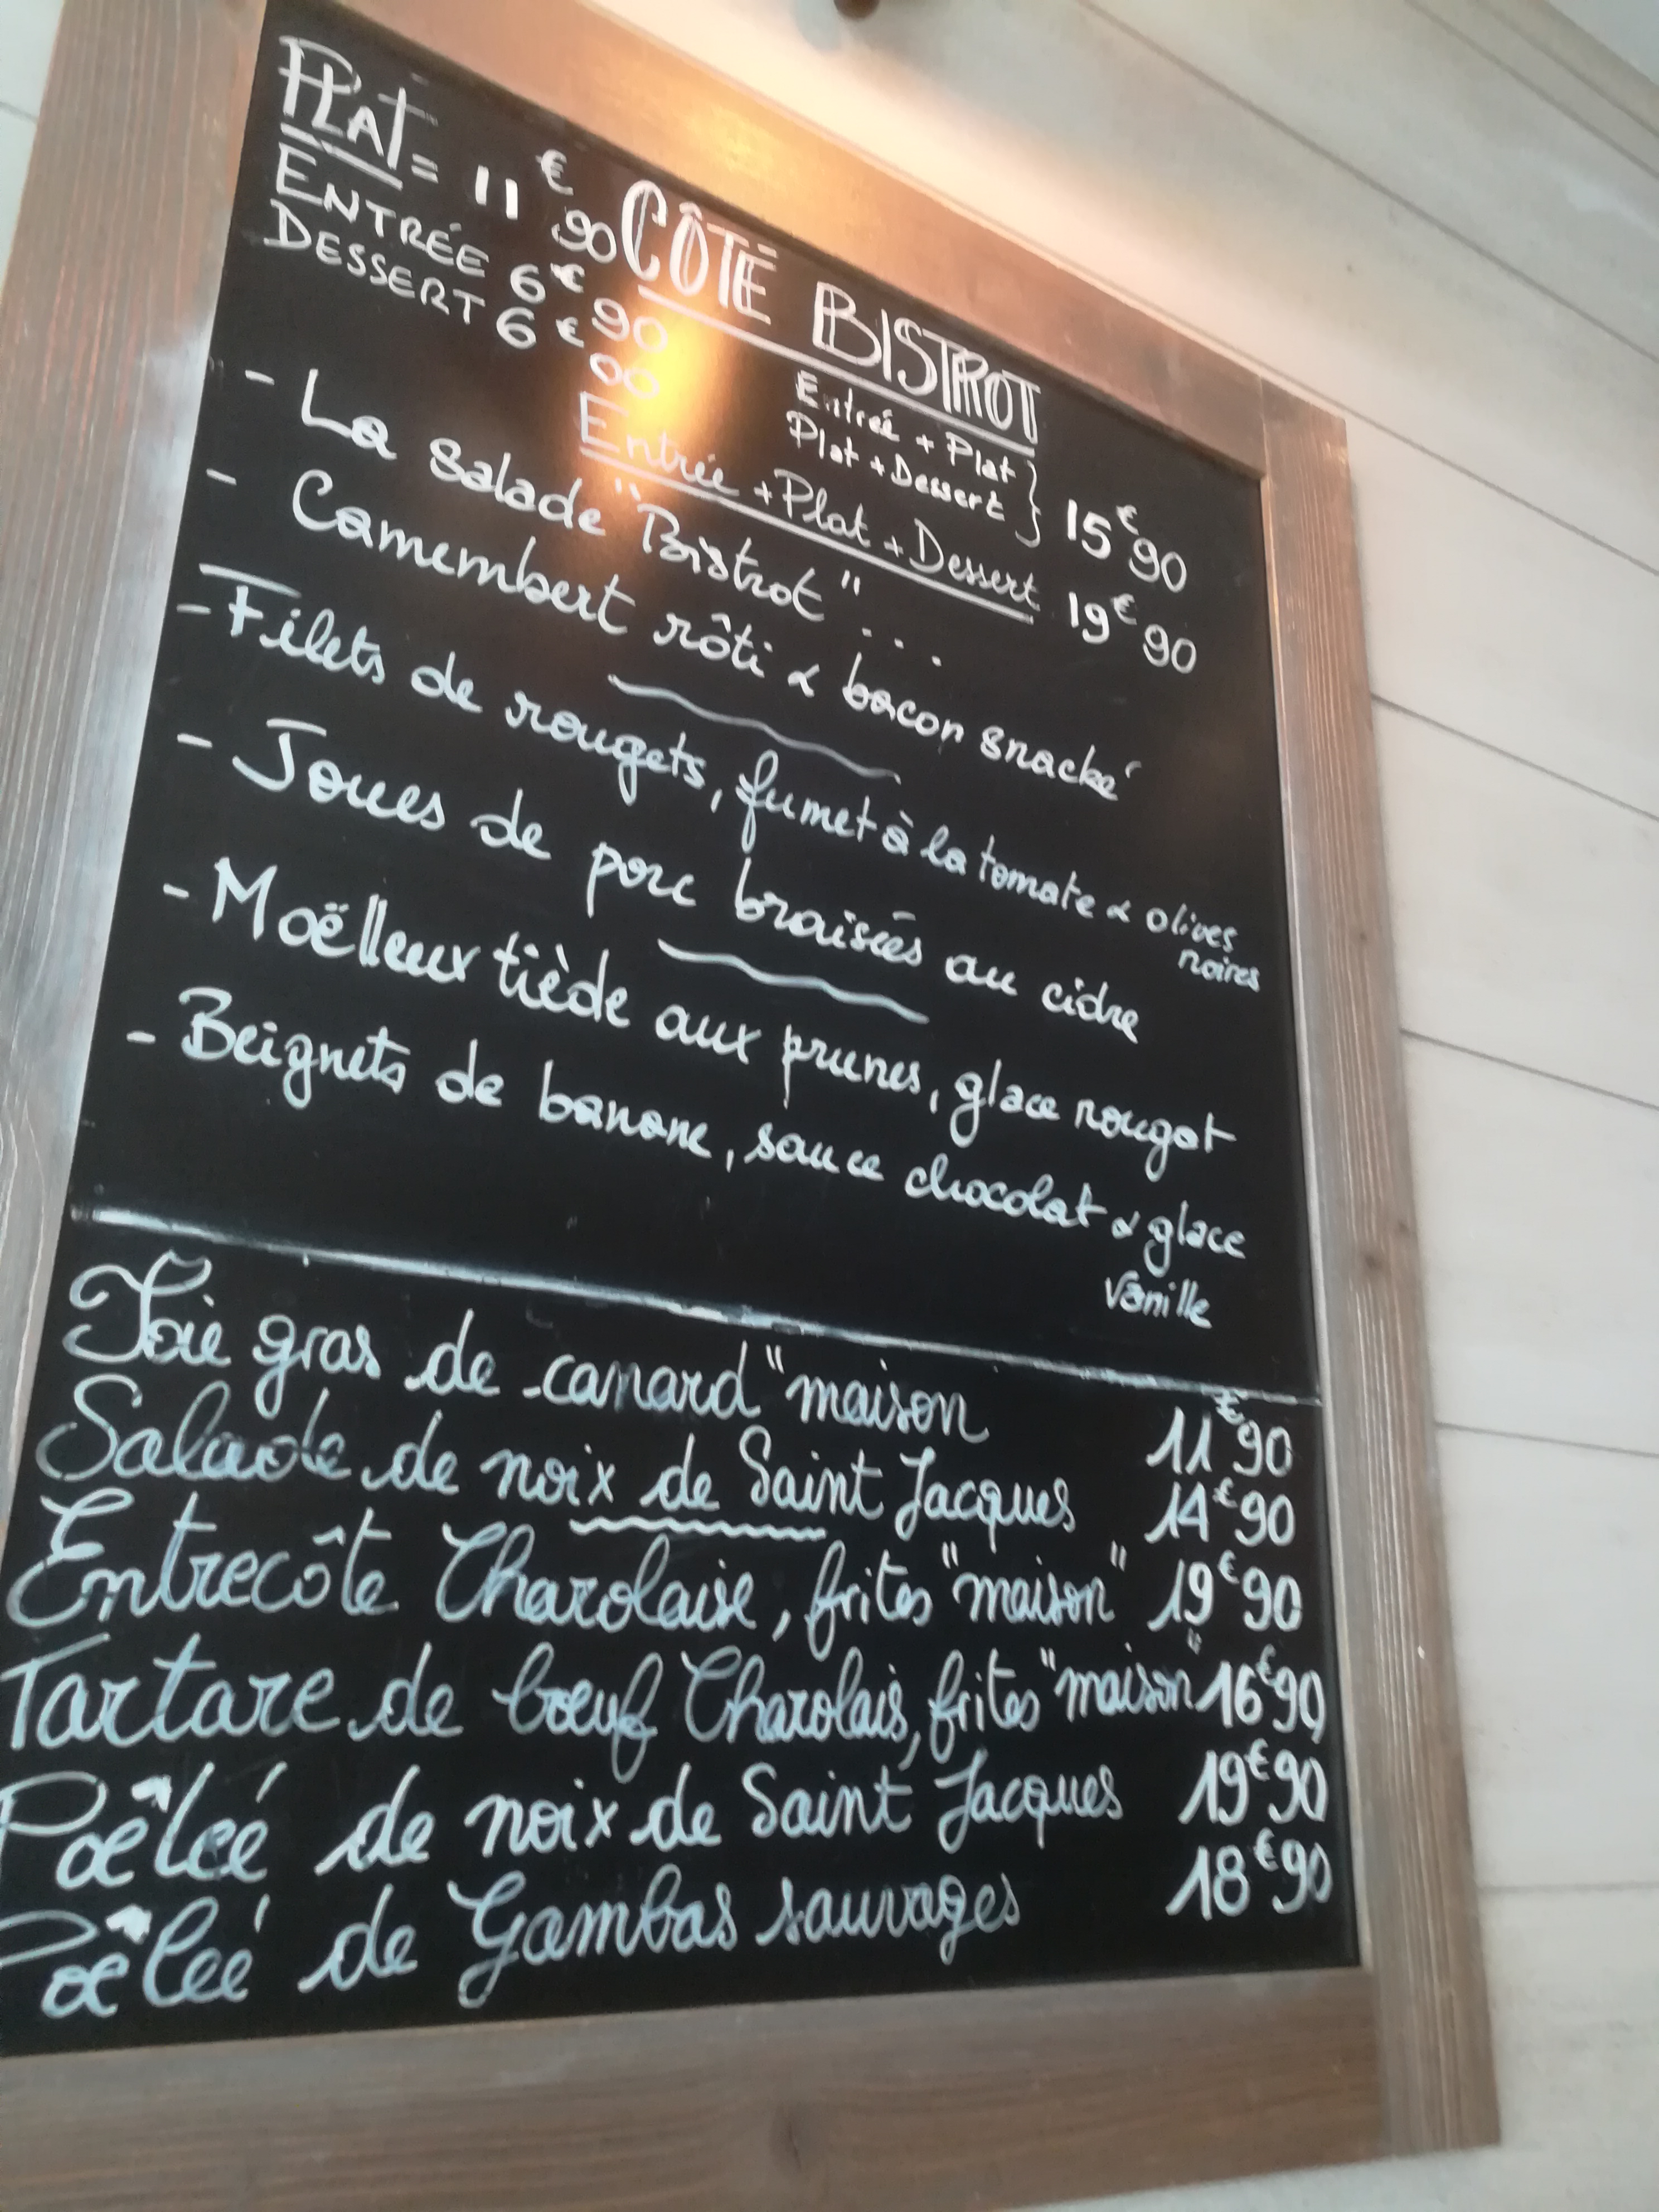 PLAT = 11€90
ENTRÉE 6€90
DESSERT 6€00
CÔTÉ BISTROT
Entrée + Plat
Plat + Dessert } 15€90
Entrée + Plat + Dessert 19€90
- La salade "Bistrot"...
- Camembert rôti & bacon snacké
- Filets de rougets, fumet à la tomate & olives
noires
- Joues de porc braisées au cidre
- Moëlleux tiède aux prunes, glace nougat
- Beignets de banane, sauce chocolat & glace
vanille
Foie gras de canard "maison 11€90
Salade de noix de Saint Jacques 14€90
Entrecôte Charolaise, frites "maison" 19€90
Tartare de boeuf Charolais, frites "maison" 16€90
Poêleé de noix de Saint Jacques 19€90
Poêleé de Gambas sauvages 18€90